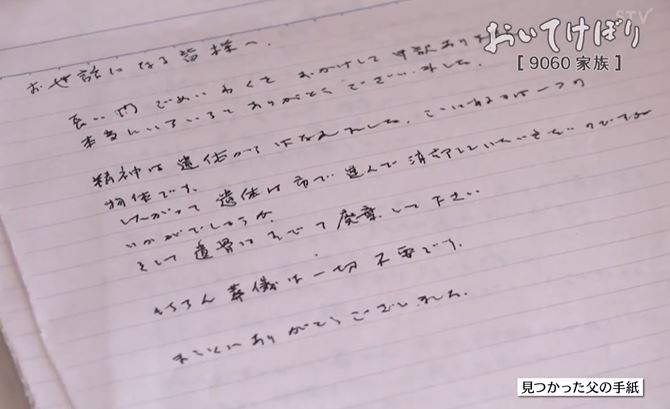 STV
おいてけぼり
[ 9060 家族 ]
お世話になる皆様へ.
長い間ごめいわくをおかけして申訳ありま
本当にいろいろとありがとうございました.
精神は遺体からはなれました. ここにあるのは一つの
物体です.
したがって遺体は市で進んで清掃していただきたいのですが
いかがでしょうか.
そして遺骨はすべて廃棄して下さい
もちろん葬儀は一切不要です.
まことにありがとうございました.
見つかった父の手紙